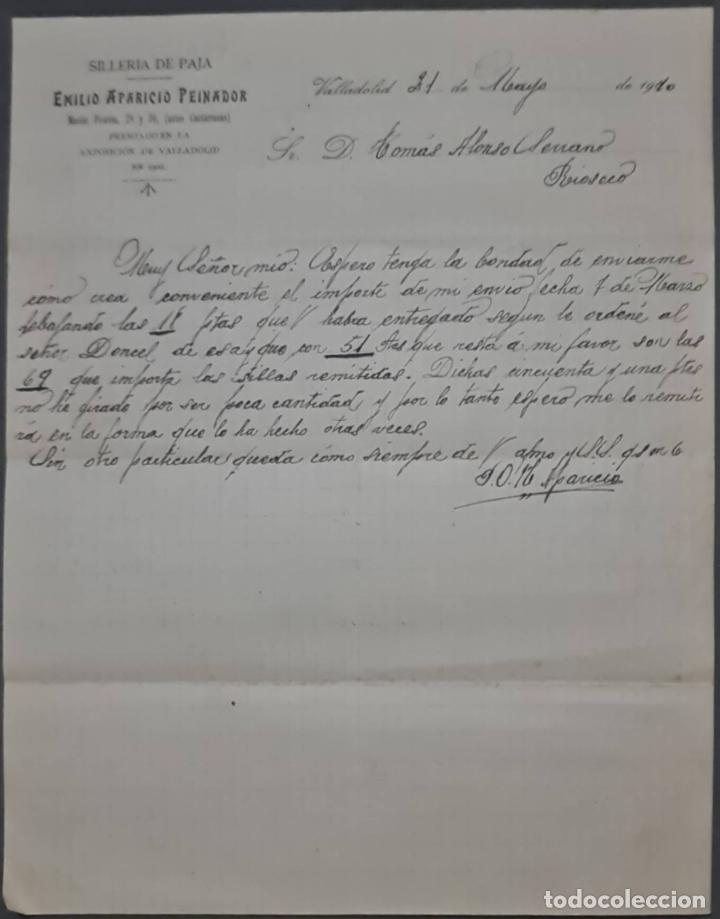 SILLERIA DE PAJA
EMILIO APARICIO PEINADOR
Macías Picavea, 28 y 30, (antes Cantarranas)
PREMIADO EN LA
EXPOSICIÓN DE VALLADOLID
EN 1906.
Valladolid 21 de Mayo de 1910
Sr. D. Tomás Alonso Serrano
Rioseco
Muy Señor mio: Espero tenga la bondad de enviarme
cómo crea conveniente el importe de mi envio fecha 7 de Marzo
rebajando las 18 ptas que V habia entregado segun le ordené al
señor Doncel de esa y que son 51 ptas que resta á mi favor son las
69 que importa las sillas remitidas. Dichas cincuenta y una ptas
no he girado por ser poca cantidad y por lo tanto espero me lo remiti
rá en la forma que lo ha hecho otras veces.
Sin otro particular queda cómo siempre de V afmo y S.S. q s m b
P.O. Aparicio
todocoleccion.net